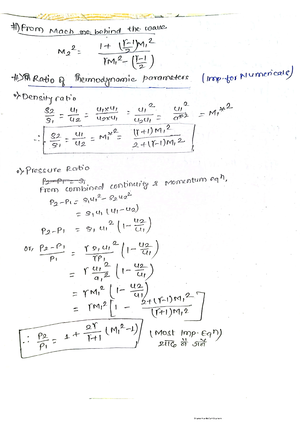 #) From Mach no behind the wave
M₂² = (1 + (γ-1)/2 M₁²) / (γM₁² - (γ-1)/2)
Ratio of Thermodynamic parameters (Imp. for Numericals)
Density ratio
S₂/S₁ = u₁/u₂ = u₁×u₁/u₂×u₁ = u₁²/u₂u₁ = u₁²/a*² = M₁*²
∴ S₂/S₁ = u₁/u₂ = M₁*² = (γ+1)M₁² / 2+(γ-1)M₁²
Pressure Ratio
From combined continuity & Momentum eqⁿ,
P₂-P₁ = S₁u₁² - S₂u₂²
= S₁u₁ (u₁-u₂)
P₂-P₁ = S₁ u₁² (1 - u₂/u₁)
or, P₂-P₁/P₁ = γ S₁ u₁²/γP₁ (1 - u₂/u₁)
= γ u₁²/a₁² (1 - u₂/u₁)
= γM₁² (1 - u₂/u₁)
= γM₁² [1 - 2+(γ-1)M₁²/(γ+1)M₁²]
∴ P₂/P₁ = 1 + 2γ/γ+1 (M₁²-1) (Most Imp. Eqⁿ)